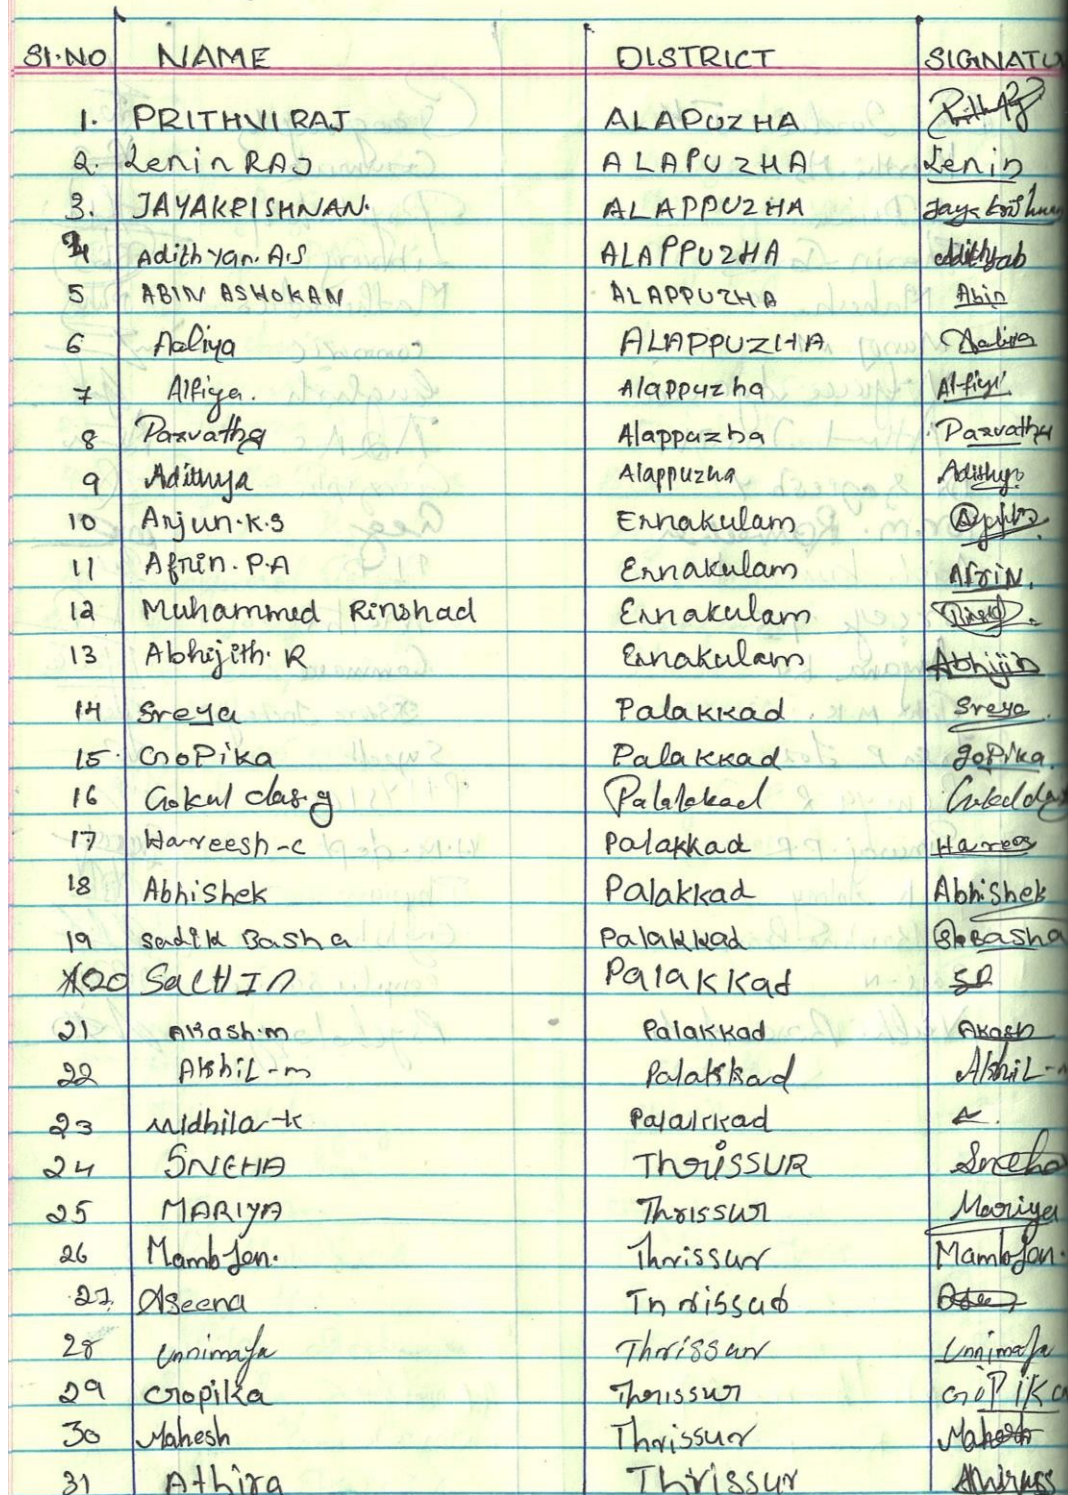 SI.NO NAME DISTRICT SIGNATU
1. PRITHVIRAJ ALAPUZHA
2. Lenin RAJ ALAPUZHA Lenin
3. JAYAKRISHNAN. ALAPPUZHA Jayakrishnan
4 Adithyan. A.S ALAPPUZHA
5 ABIN ASHOKAN ALAPPUZHA Abin
6 Aaliya ALAPPUZHA Aaliya
7 Alfiya. Alappuzha Alfiya
8 Parvathy Alappuzha Parvathy
9 Adithya Alappuzha Adithya
10 Arjun.K.S Ernakulam
11 Afrin. P.A Ernakulam AfriN.
12 Muhammed Rinshad Ernakulam
13 Abhijith. R Ernakulam Abhijith
14 Sreya Palakkad Sreya
15. GoPika Palakkad goPika.
16 Gokul das.g Palakkad Gokuldas
17 Hareesh-c Palakkad Harees
18 AbhiShek Palakkad AbhiShek
19 Sadik Basha Palakkad Basha
20 SaCHIn Palakkad
21 Akash.m Palakkad Akash
22 AkhiL-m Palakkad AkhiL-m
23 Midhila-k Palakkad
24 SNEHA ThriSSUR Sneha
25 MARIYA Thrissur Mariya
26 Mambjen. Thrissur Mambjen.
27. Aseena Thrissur
28 Unnimaya Thrissur Unnimaya
29 Gopika Thrissur GoPiKa
30 Mahesh Thrissur Mahesh
31 Athira Thrissur